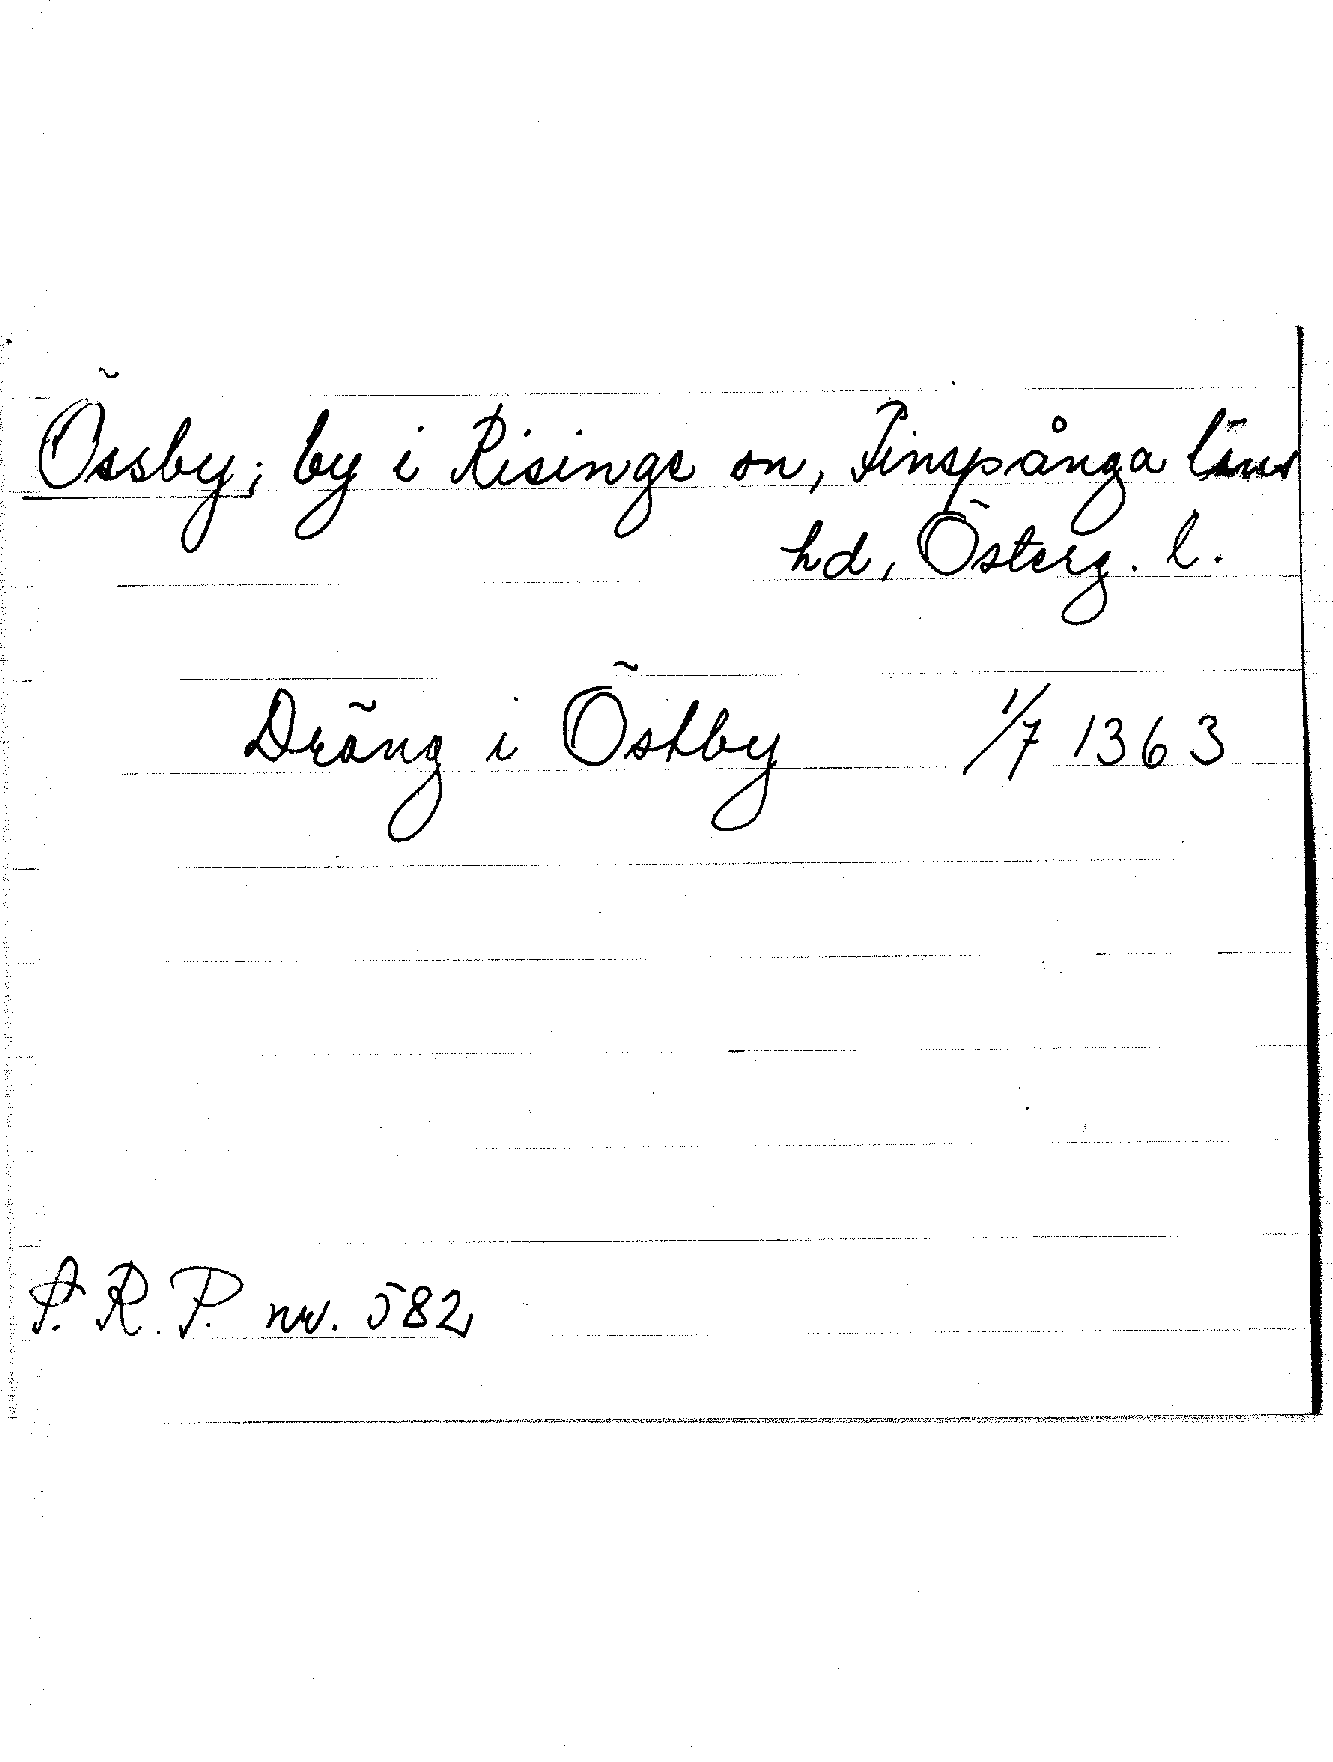 Össby; by i Risinge sn, Finspånga läns
hd, Österg. l.
Dräng i Östby 1/7 1363
S.R.P. nr. 582